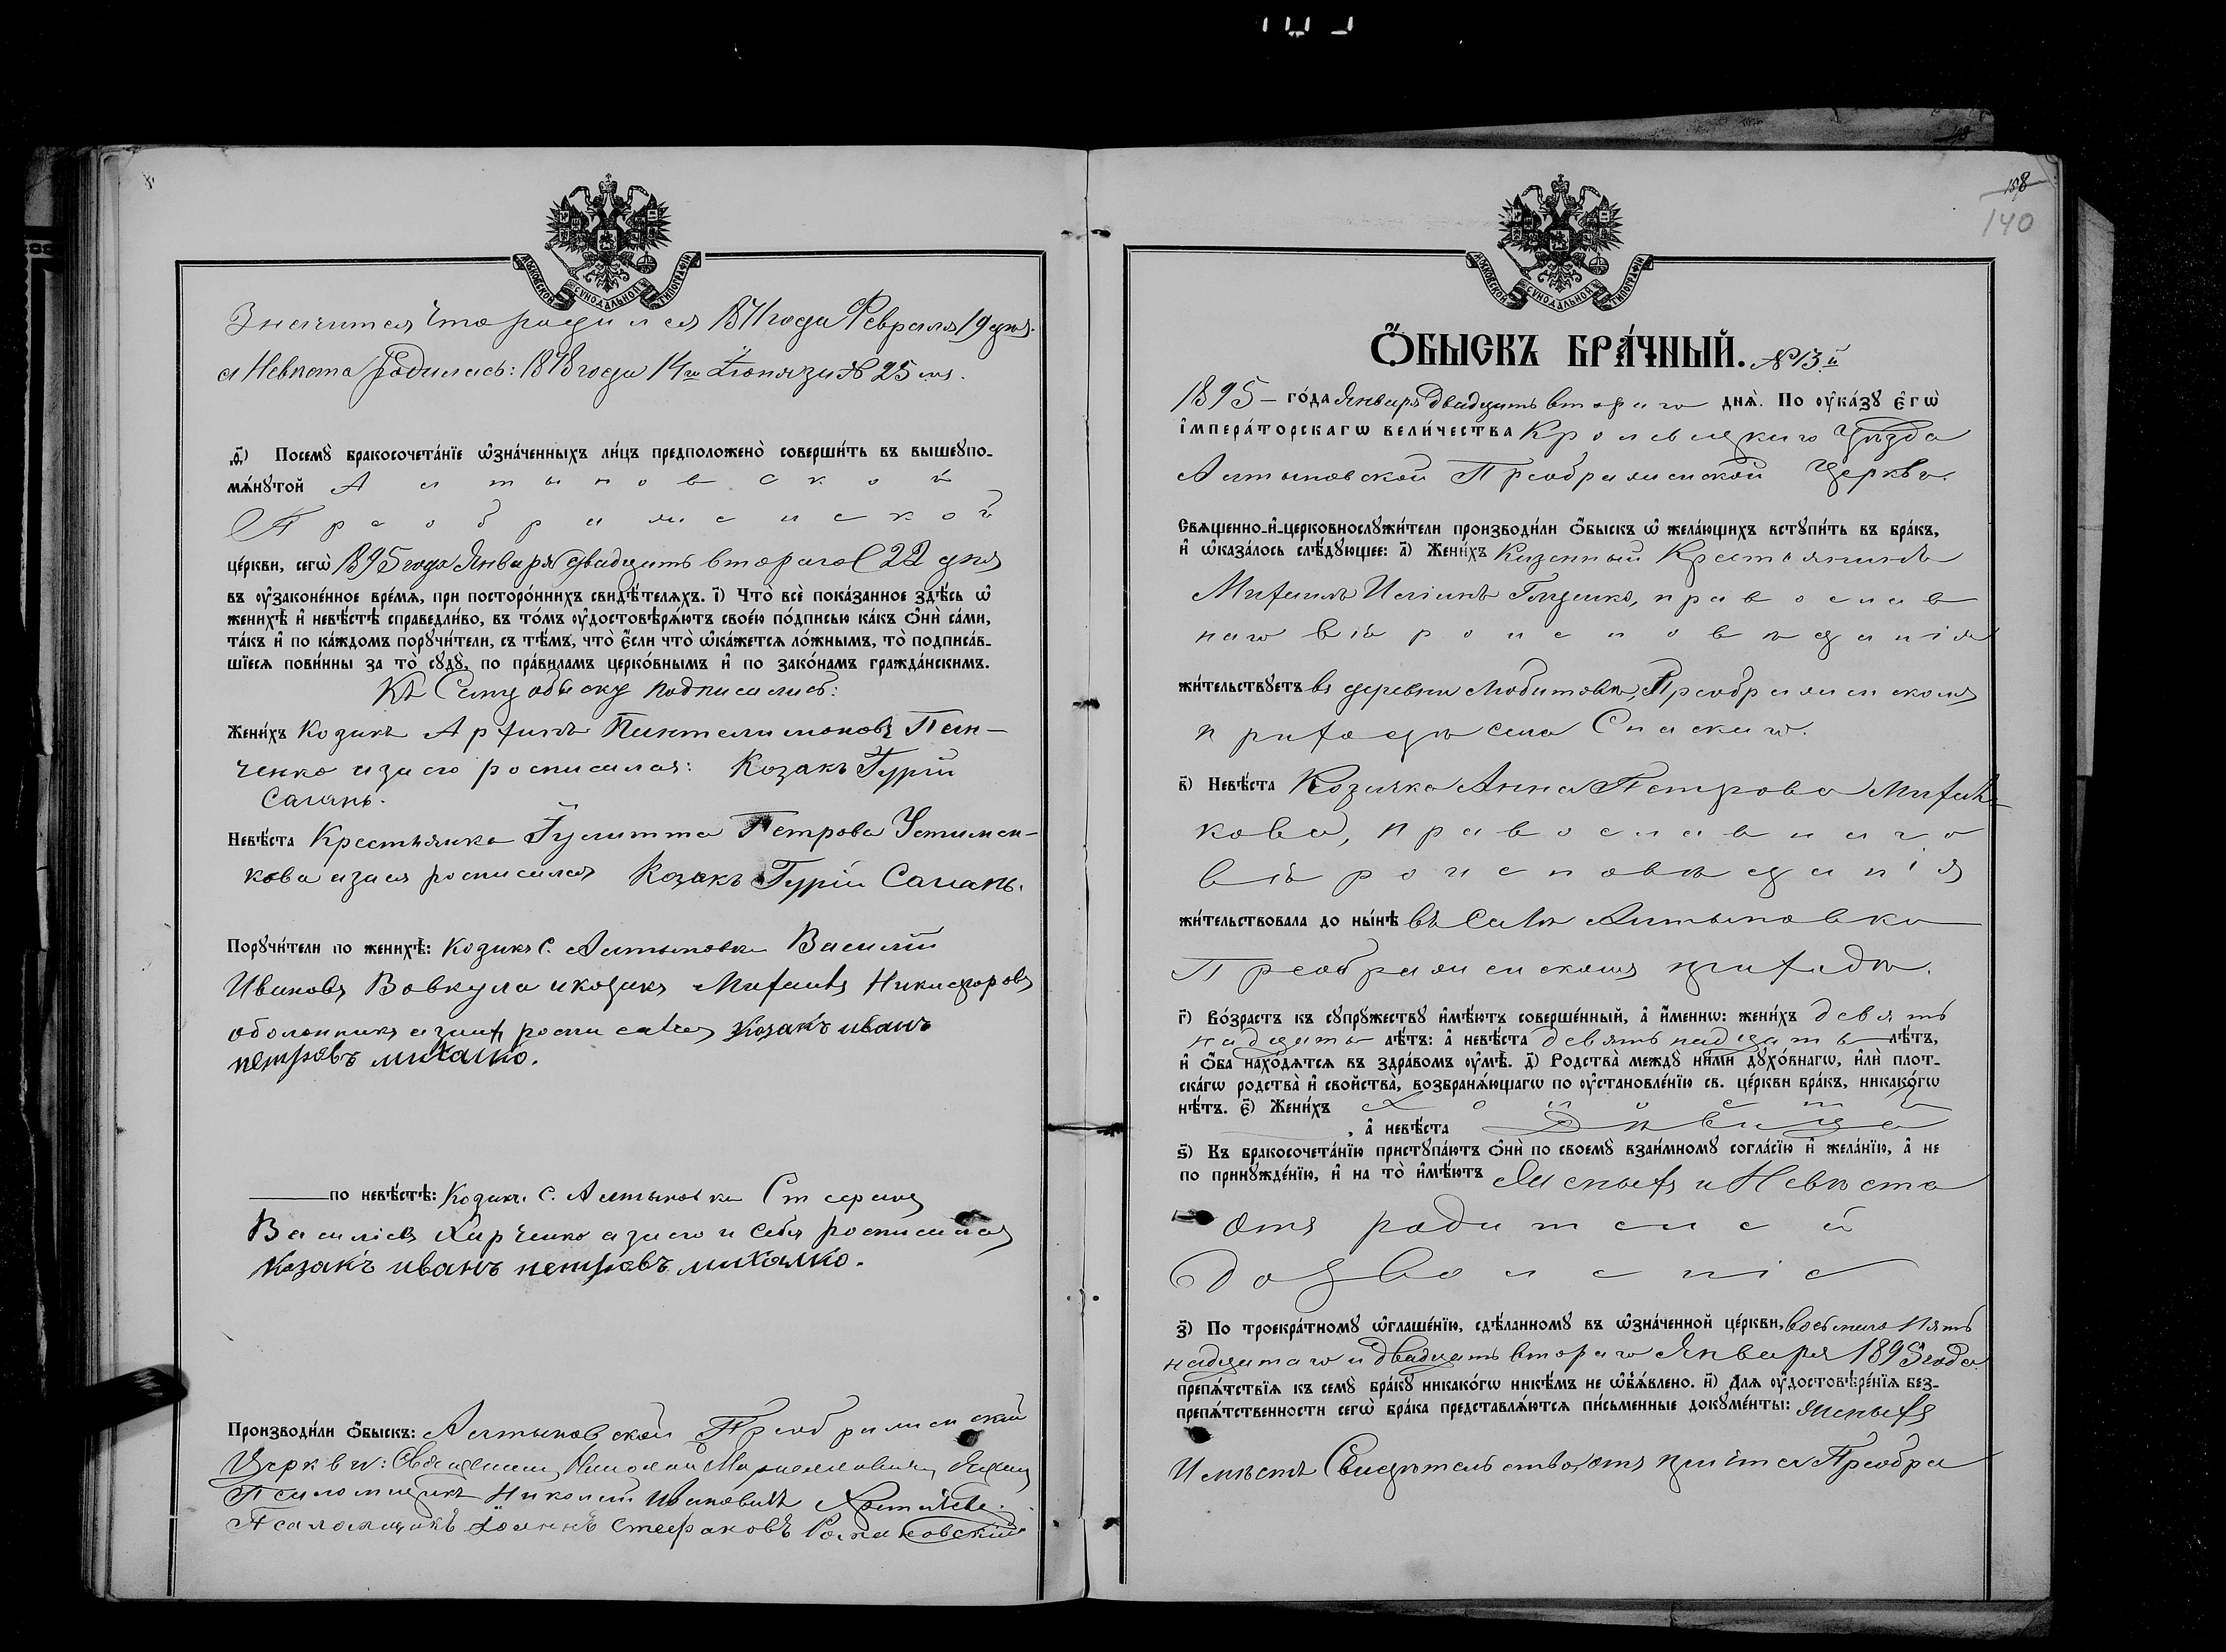 МОСКОВСКОЙ СѴНОДАЛЬНОЙ ТИПОГРАФІИ
Значится что родился 1871 года Февраля 19 дня.
а Невѣста родилась: 1878 года 14го Іюня за № 25 мъ.
д҃) Посемꙋ бракосочета́нїе ѡ҆зна́ченныхъ ли́цъ предположено̀ соверши́ть въ вышеꙋпо-
мѧ́нꙋтой Алтыновской
Преображенской
це́ркви, сегѡ̀ 1895 года Января двадцать второго 22 дня
въ ᲂу҆зако́ненное вре́мѧ, при посторо́ннихъ свидѣ́телѧхъ. і҃) Что̀ всѐ пока́занное здѣ́сь ѡ҆
женихѣ̀ и҆ невѣ́стѣ справедли́во, въ то́мъ ᲂу҆достовѣрѧ́ютъ свое́ю по́дписью ка́къ ѻ҆нѝ са́ми,
та́къ и҆ по ка́ждомъ порꙋчи́тели, съ тѣ́мъ, что̀ є҆́сли что̀ ѡ҆ка́жетсѧ ло́жнымъ, то̀ подписа́в-
шїесѧ пови́нны за то̀ сꙋдꙋ̀, по пра́виламъ церко́внымъ и҆ по зако́намъ гражда́нскимъ.
Къ Сему обыску подписались:
Жени́хъ Козакъ Архипъ Пантелимоновъ Пан-
ченко а за его росписался: Козакъ Гурій
Саганъ.
Невѣ́ста Крестьянка Гулитта Петрова Устимен-
кова а за ея росписался Козакъ Гурій Саганъ.
Порꙋчи́тели по женихѣ̀: Козакъ с. Алтыновки Василій
Ивановъ Вовкула и козакъ Михаилъ Никифоровъ
оболонникъ а за нихъ росписался Козакъ иванъ
петровъ михалко.
по невѣ́стѣ: Козакъ с. Алтыновки Стефанъ
Василіевъ Харченко а за его и себя росписался
Козакъ иванъ петровъ михалко.
Производи́ли ѻ҆́быскъ: Алтыновской Преображенской
Церкви: Священникъ Николай
Псаломщикъ Николай Ивановичъ
Псаломщикъ Іоаннъ Стефановъ Романовскій
158
140
МОСКОВСКОЙ СѴНОДАЛЬНОЙ ТИПОГРАФІИ
Ѻ҆́БЫСКЪ БРА́ЧНЫЙ. № 13 й
1895 – го́да Января двадцать второго днѧ̀. По ᲂу҆ка́зꙋ є҆гѡ̀
і҆мпера́торскагѡ вели́чества Кролевецкаго Уѣзда
Алтыновской Преображенской Церкви.
Свѧще́нно-и҆-церковнослꙋжи́тели производи́ли ѻ҆́быскъ ѡ҆ жела́ющихъ встꙋпи́ть въ бра́къ,
и҆ ѡ҆каза́лось слѣ́дꙋющее: а҃) Жени́хъ Казенный Крестьянинъ
Михаилъ Иліинъ Гаценко, православ
наго вѣроисповѣданія
жи́тельствꙋетъ въ деревни Любитовкѣ, Преображенскомъ
приходѣ села Спаскаго.
в҃) Невѣ́ста Козачка Анна Петрова Михал-
кова, православнаго
вѣроисповѣданія
жи́тельствовала до ны́нѣ въ селѣ Алтыновкѣ
Преображенскомъ приходѣ.
г҃) Во́зрастъ къ сꙋпрꙋ́жествꙋ и҆мѣ́ютъ соверше́нный, а҆ и҆́меннѡ: жени́хъ девят
надцать лѣ́тъ: а҆ невѣ́ста девятнадцать лѣ́тъ,
и҆ ѻ҆́ба нахо́дѧтсѧ въ здра́вомъ ᲂу҆мѣ̀. д҃) Родства̀ междꙋ ни́ми дꙋхо́внагѡ, и҆лѝ плот-
ска́гѡ родства̀ и҆ свойства̀, возбранѧ́ющагѡ по ᲂу҆становле́нїю св. це́ркви бра́къ, никако́гѡ
нѣ́тъ. є҃) Жени́хъ холостъ
, а҆ невѣ́ста Дѣвица
ѕ҃) Къ бракосочета́нїю пристꙋпа́ютъ ѻ҆нѝ по своемꙋ̀ взаи́мномꙋ согла́сїю и҆ жела́нїю, а҆ не
по принꙋжде́нїю, и҆ на то̀ и҆мѣ́ютъ Женихъ и Невѣста
Отъ родителей
Дозволеніе
з҃) По троекра́тномꙋ ѡ҆глаше́нїю, сдѣ́ланномꙋ въ ѡ҆зна́ченной це́ркви, восьмого пят
надцатаго и двадцать второго Января 1895 года
препѧ́тствїѧ къ семꙋ̀ бра́кꙋ никако́гѡ никѣ́мъ не ѡ҆б̾ѧ́влено. и҃) Длѧ ᲂу҆достовѣре́нїѧ без-
препѧ́тственности сегѡ̀ бра́ка представлѧ́ютсѧ пи́сьменные докꙋме́нты: Женихъ
Имѣетъ Свидѣтельство, отъ причта Преобра